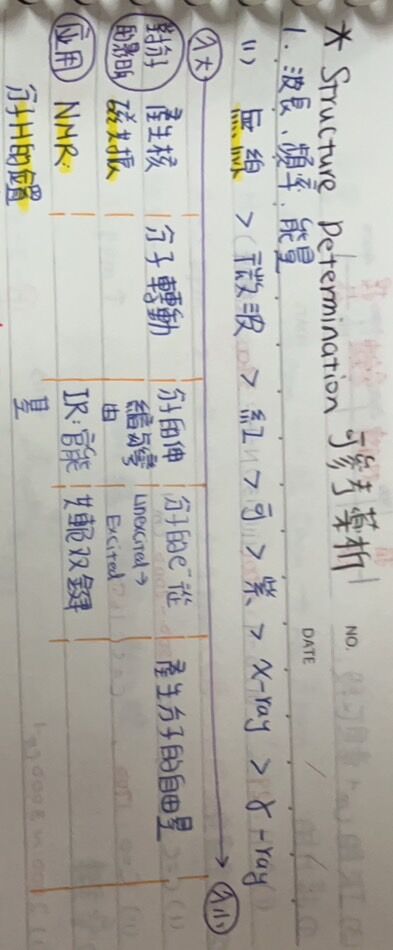 * Structure Determination 可參考藥析
NO.
DATE
1. 波長、頻率、能量
(1) 無線 > 微波 > 紅 > 可 > 紫 > x-ray > γ-ray
λ大 λ小
對分子的影響
產生核磁共振
分子轉動
分子的伸縮彎曲
分子的e⁻從 unexcited→ Excited
產生分子的自由基
应用
NMR:
分子H的位置
IR:官能基
共軛双鍵